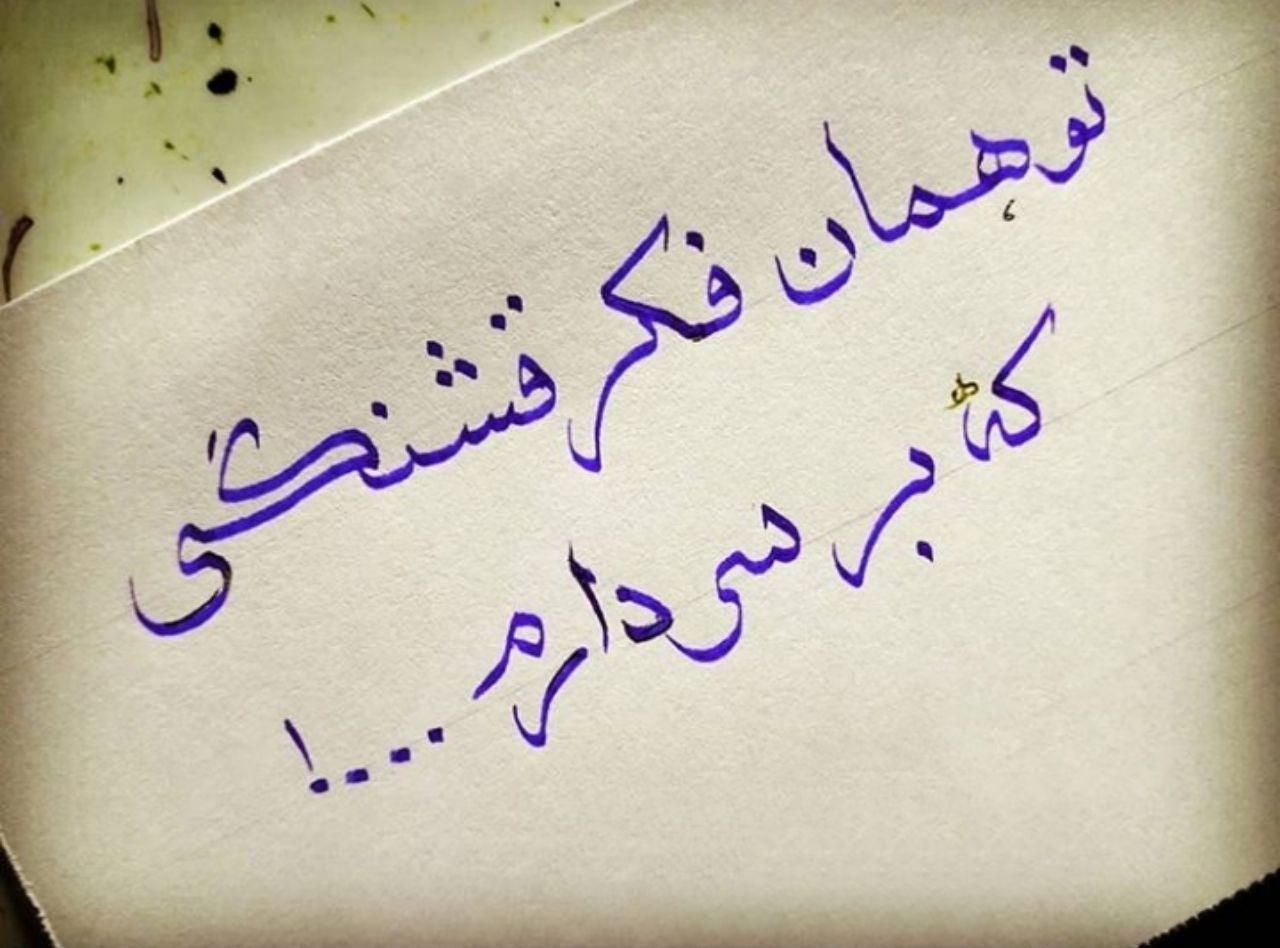 تو همان فکر قشنگی
که بر سی دارم ....!